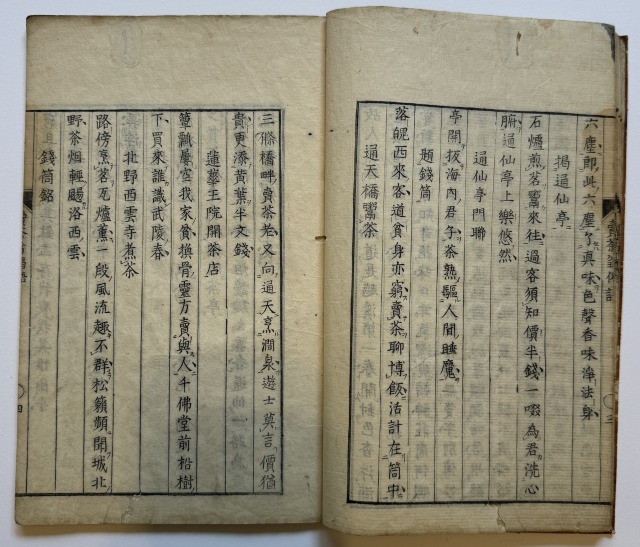 六塵即此六塵了真味色聲香味淨法身
揭通仙亭
石爐煎茗鬻來往過客須知價半錢一啜為君洗心
腑通仙亭上樂悠然
通仙亭門聯
亭開抜海內君子茶熟驅人間睡魔
題錢筒
落魄西來客道貧身亦窮賣茶聊博飯活計在筒中
通天橋鬻茶
三條橋畔賣茶老又向通天烹澗泉遊士莫言價猶
貴更添黃葉半文錢
蓮華王院開茶店
簞瓢屢空我家貧換骨靈方賣與人千佛堂前松樹
下買來誰識武陵春
北野西雲寺煮茶
路傍烹茗瓦爐薰一段風流趣不群松籟頻聞城北
野茶烟輕颺洛西雲
錢筒銘
四